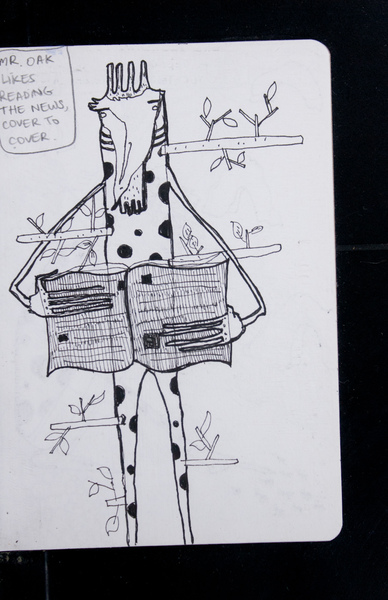 MR. OAK
LIKES
READING
THE NEWS,
COVER TO
COVER.